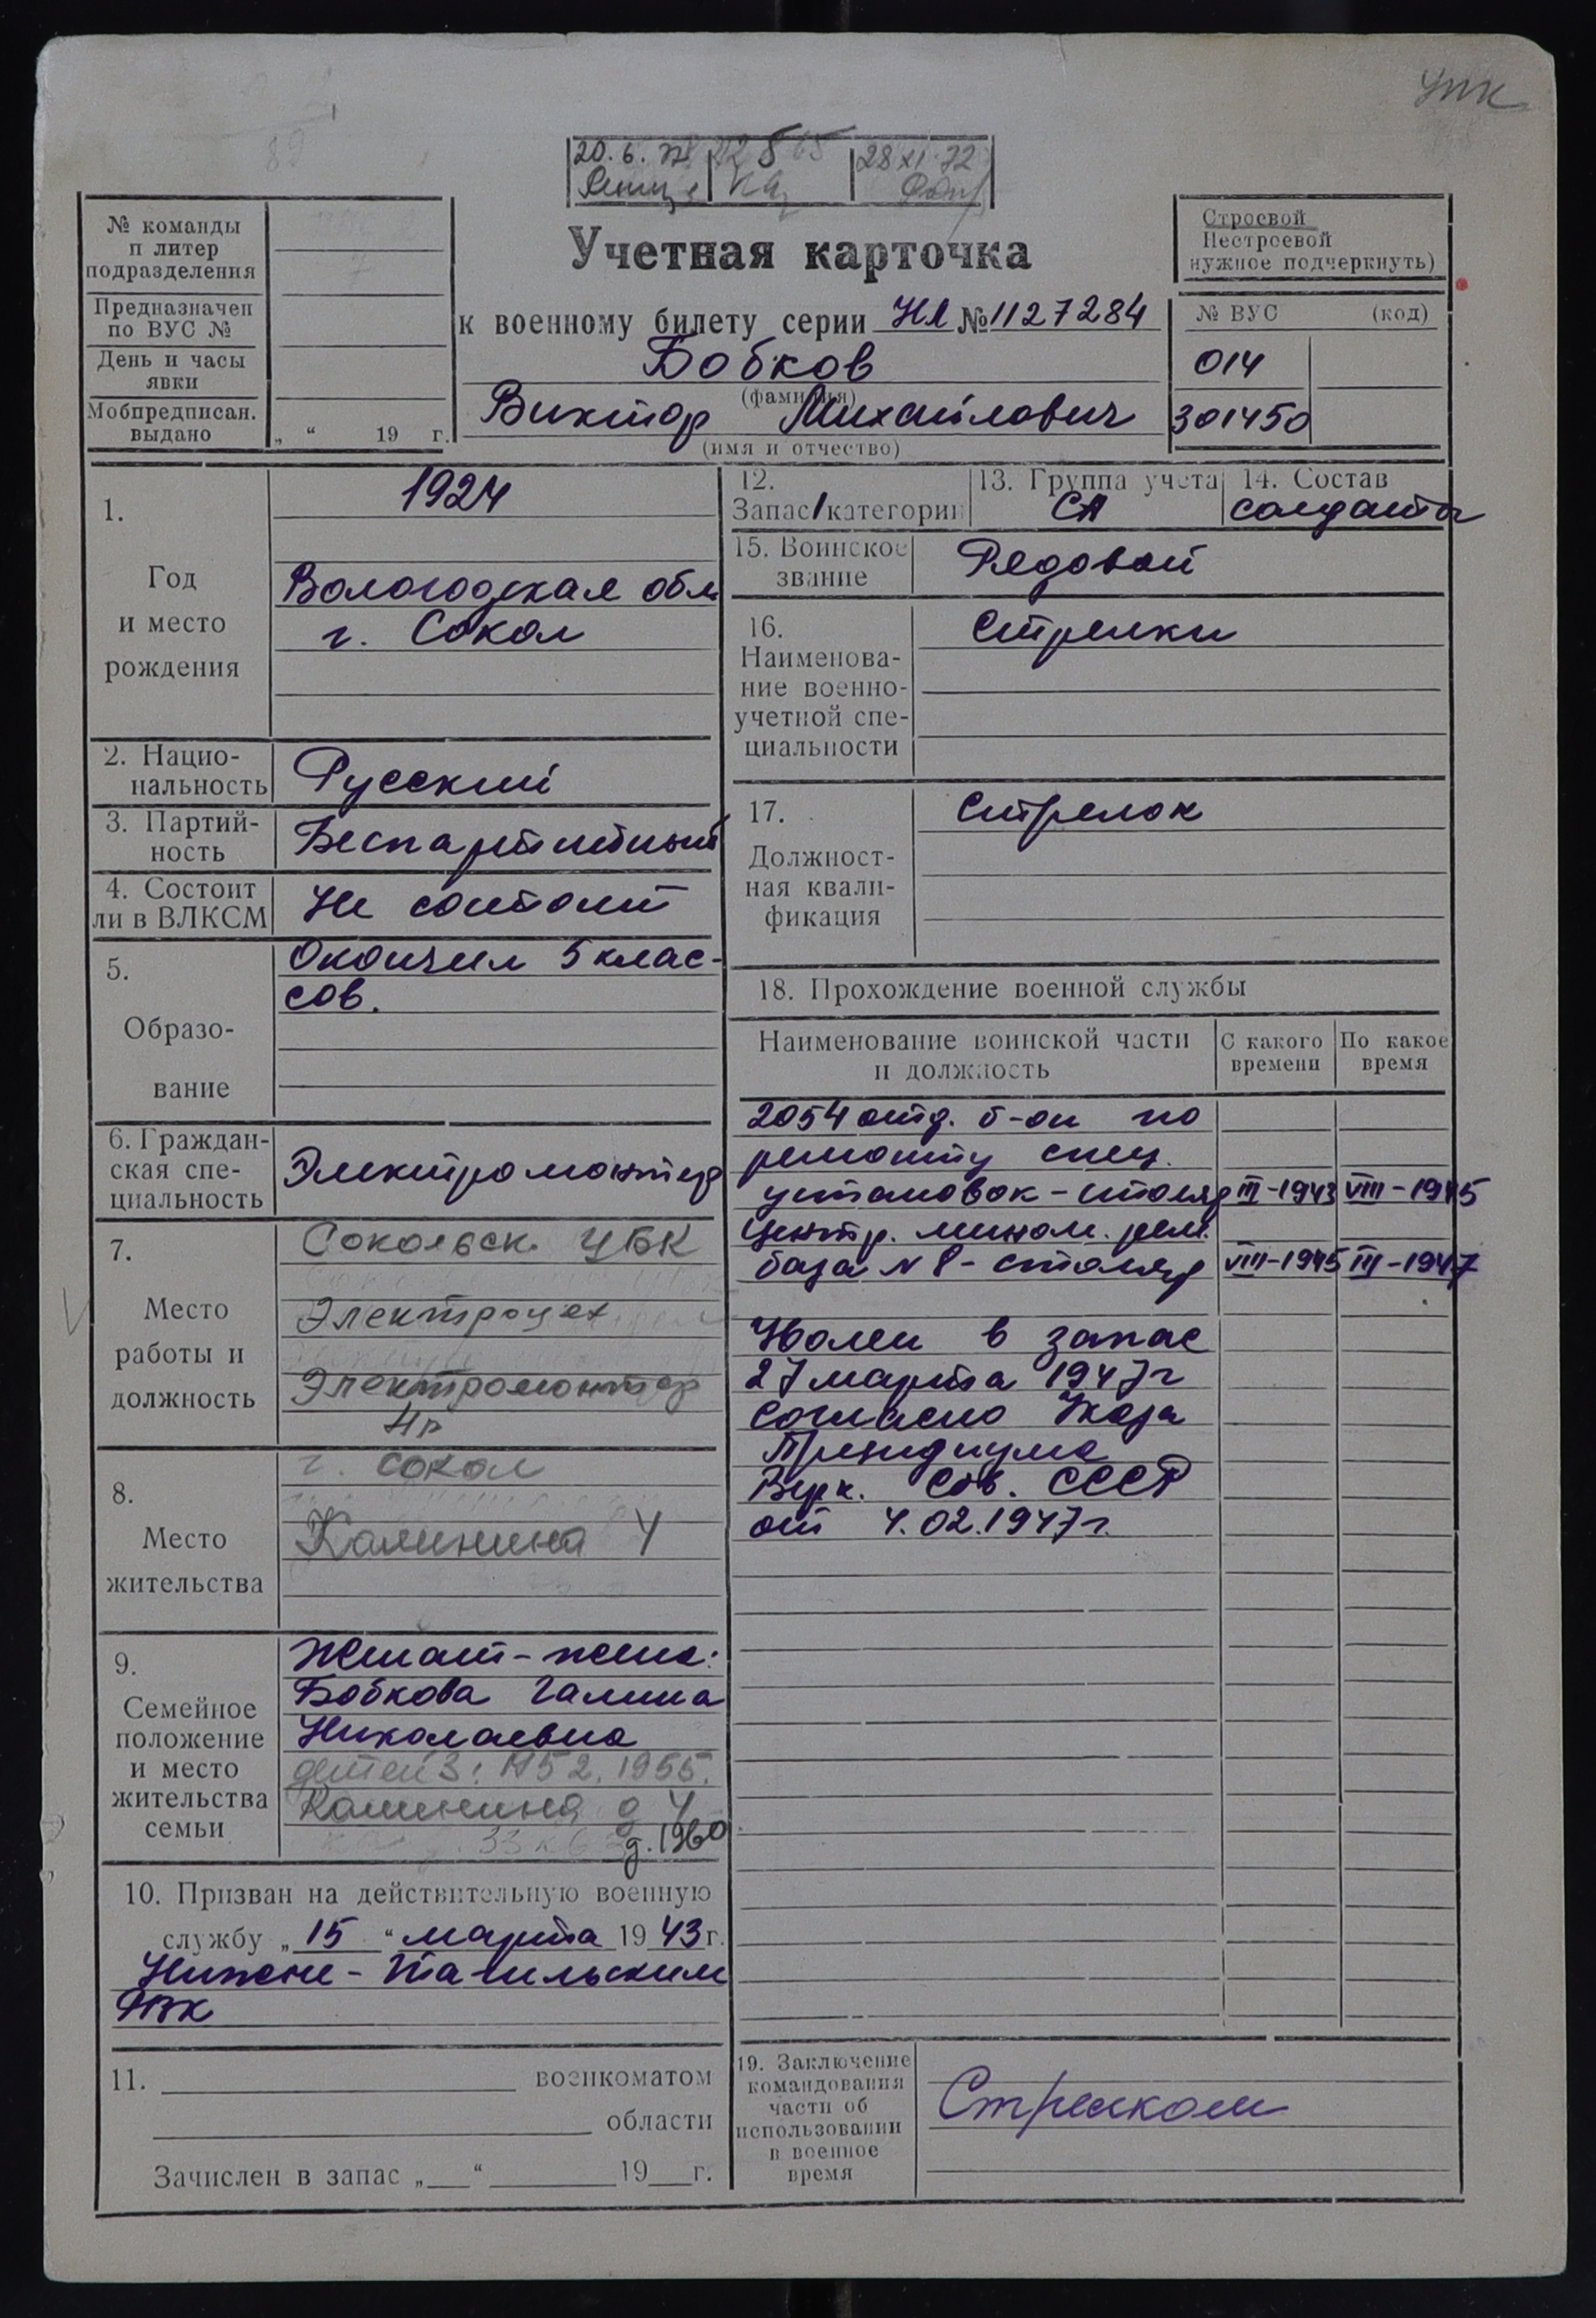 упк
20.6.72
28 XI 72
№ команды
п литер
подразделения
Предназначен
по ВУС №
День и часы
явки
Мобпредписан.
выдано
„ “ 19 г.
Учетная карточка
к военному билету серии НЛ № 1127284
Бобков
(фамилия)
Виктор Михайлович
(имя и отчество)
Строевой
Нестроевой
нужное подчеркнуть)
№ ВУС (код)
014
301450
1.
Год
и место
рождения
1924
Вологодская обл
г. Сокол
2. Нацио-
нальность
Русский
3. Партий-
ность
Беспартийный
4. Состоит
ли в ВЛКСМ
Не состоит
5.
Образо-
вание
Окончил 5 клас-
сов.
6. Граждан-
ская спе-
циальность
Электромонтер
7.
Место
работы и
должность
Сокольск. ЦБК
Электроцех
Электромонтер
4р
8.
Место
жительства
г. Сокол
Калинина 4
9.
Семейное
положение
и место
жительства
семьи
Женат - жена:
Бобкова Галина
Николаевна
детей 3: 1952, 1955.
Калинина д 4
д. 1960
10. Призван на действительную военную
службу „15“ марта 1943 г.
Нижне-Тагильским
РВК
11. военкоматом
области
Зачислен в запас „ “ 19 г.
12.
Запас/категории
13. Группа учета
СА
14. Состав
солдаты
15. Воинское
звание
Рядовой
16.
Наименова-
ние военно-
учетной спе-
циальности
Стрелки
17.
Должност-
ная квали-
фикация
Стрелок
18. Прохождение военной службы
Наименование воинской части
и должность
С какого
времени
По какое
время
2054 отд. б-он по
ремонту спец.
установок - столяр III-1943 VIII-1945
Центр. мином. рем.
база N 8 - столяр VIII-1945 III-1947
Уволен в запас
27 марта 1947г
согласно Указа
Президиума
Верх. Сов. СССР
от 4.02.1947г.
19. Заключение
командования
части об
использовании
в военное
время
Стрелком